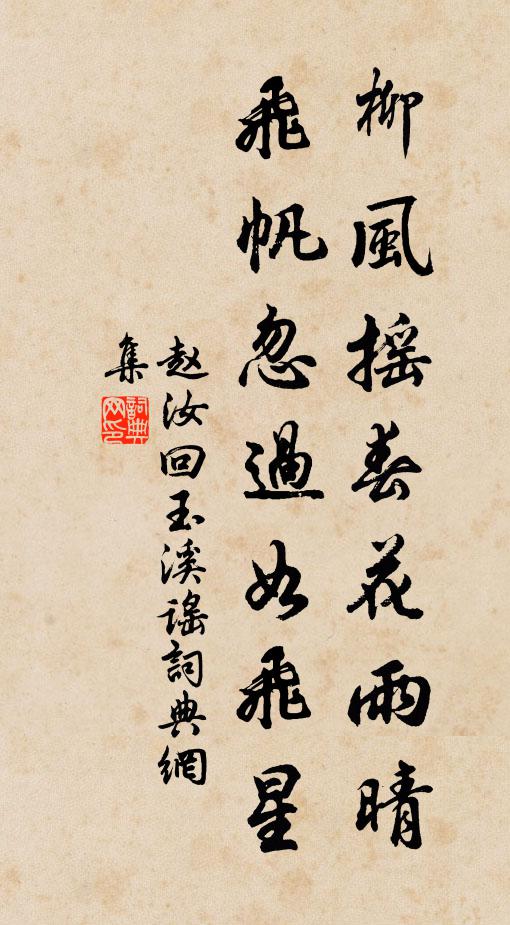 柳風摇春花雨晴
飛帆忽過如飛星
赵汝回玉溪谣詞典網
集
詞典網印